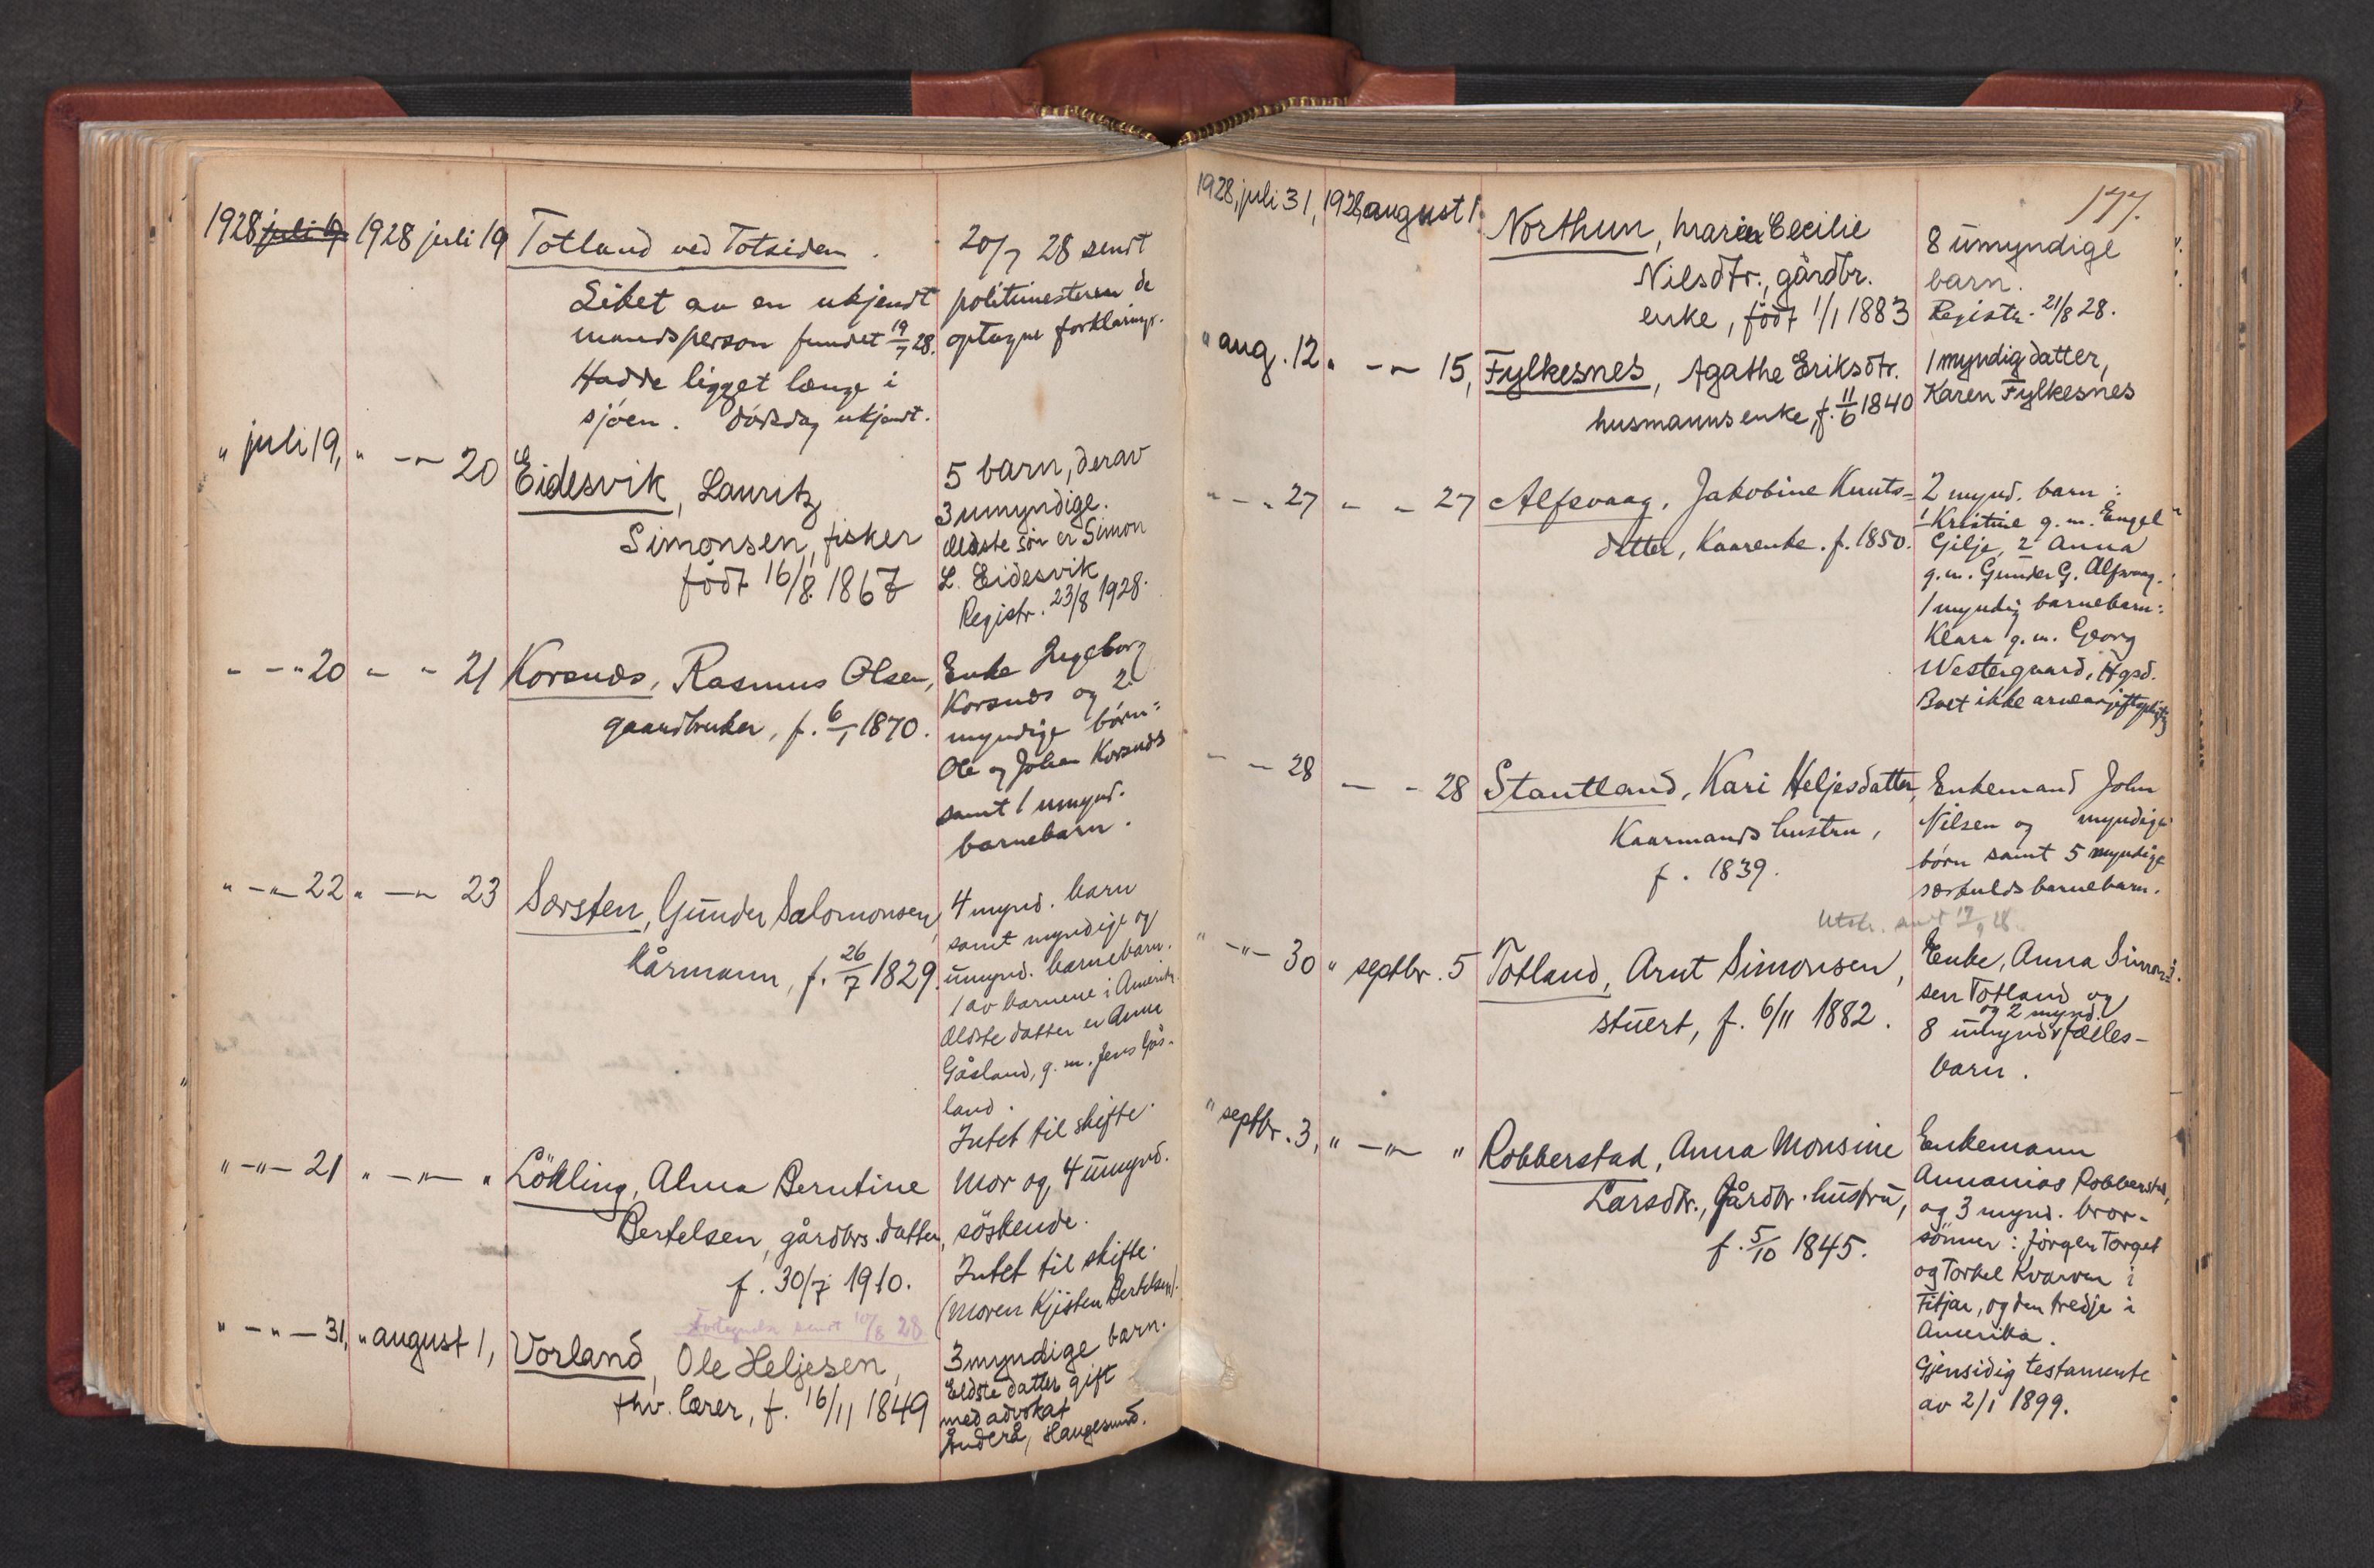 1928 juli 19 1928 juli 19 Totland ved Totsiden. 20/7 28 sendt
Liket av en ukjendt politimesteren de
mandsperson fundet 19/7 28. optagne forklaringr.
Hadde ligget længe i
sjøen. Dødsdag ukjendt.
" juli 19, " -"- 20 Eidesvik, Lauritz 5 barn, derav
3 umyndige.
Simonsen, fisker Ældste søn er Simon
født 16/8 1867 L. Eidesvik
Registr. 23/8 1928.
" -"- 20 " " 21 Korsnæs, Rasmus Olsen, Enke Ingeborg
Korsnæs og 2
gaardbruker, f. 6/1 1870. myndige børn:
Ole og Johan Korsnæs
samt 1 umynd.
barnebarn.
" -"- 22 " -"- 23 Sørsten, Gunder Salomonsen, 4 mynd. barn
samt myndige og
kårmann, f. 26/7 1829. umynd. barnebarn.
1 av barnene i Amerika.
Ældste datter er Anne
Gåsland, g. m. Jens Gås-
land.
Intet til skifte.
" -"- 21 " -"- " Lökling, Alma Berntine Mor og 4 umynd.
Bertelsen, gårdbrs. datter, söskende.
f. 30/7 1910. Intet til skifte.
(Moren Kjisten Bertelsen).
sendt 10/8 28
" -"- 31, " august 1, Vorland, Ole Heljesen, 3 myndige barn.
Eldste datter gift
fhv. lærer, f. 16/11 1849 med advokat
Haugesund.
177.
1928, juli 31, 1928, august 1. Northun, Maria Cecilie 8 umyndige
Nilsdtr., gårdbr. barn.
enke, født 1/1 1883 Registr. 21/8 28.
" aug. 12 " -"- 15, Fylkesnes, Agathe Eriksdtr. 1 myndig datter,
husmanns enke, f. 11/6 1840 Karen Fylkesnes
" - " 27 " " 27 Alfsvaag, Jakobine Knuts= 2 mynd. barn:
1 Kristine g. m. Engel
datter, Kaarenke. f. 1850. Gilje, 2 Anna
g. m. Gunder G. Alfsvaag.
1 myndig barnebarn:
Klara g. m. Georg
Westergaard, Hgsd.
Boet ikke arveavgiftspligtig
" - 28 " - 28 Stautland, Kari Heljesdatter, Enkemand John
Kaarmands hustru, Nilsen og myndige
f. 1839. børn samt 5 myndige
særkulds barnebarn.
Utskr. sendt 17/9 28.
" -"- 30 " septbr. 5 Totland, Arnt Simonsen, Enke, Anna Simon-
sen Totland og
og 2 mynd.
stuert, f. 6/11 1882. 8 umynd. fælles-
barn.
" septbr. 3, " -"- " Robberstad, Anna Monsine Enkemann
Larsdtr., gårdbr. hustru, Annanias Robberstad,
og 3 mynd. bror-
f. 5/10 1845. sønner: Jørgen Torget
og Torkel Kvarven i
Fitjar, og den tredje i
Amerika.
Gjensidig testamente
av 2/1 1899.